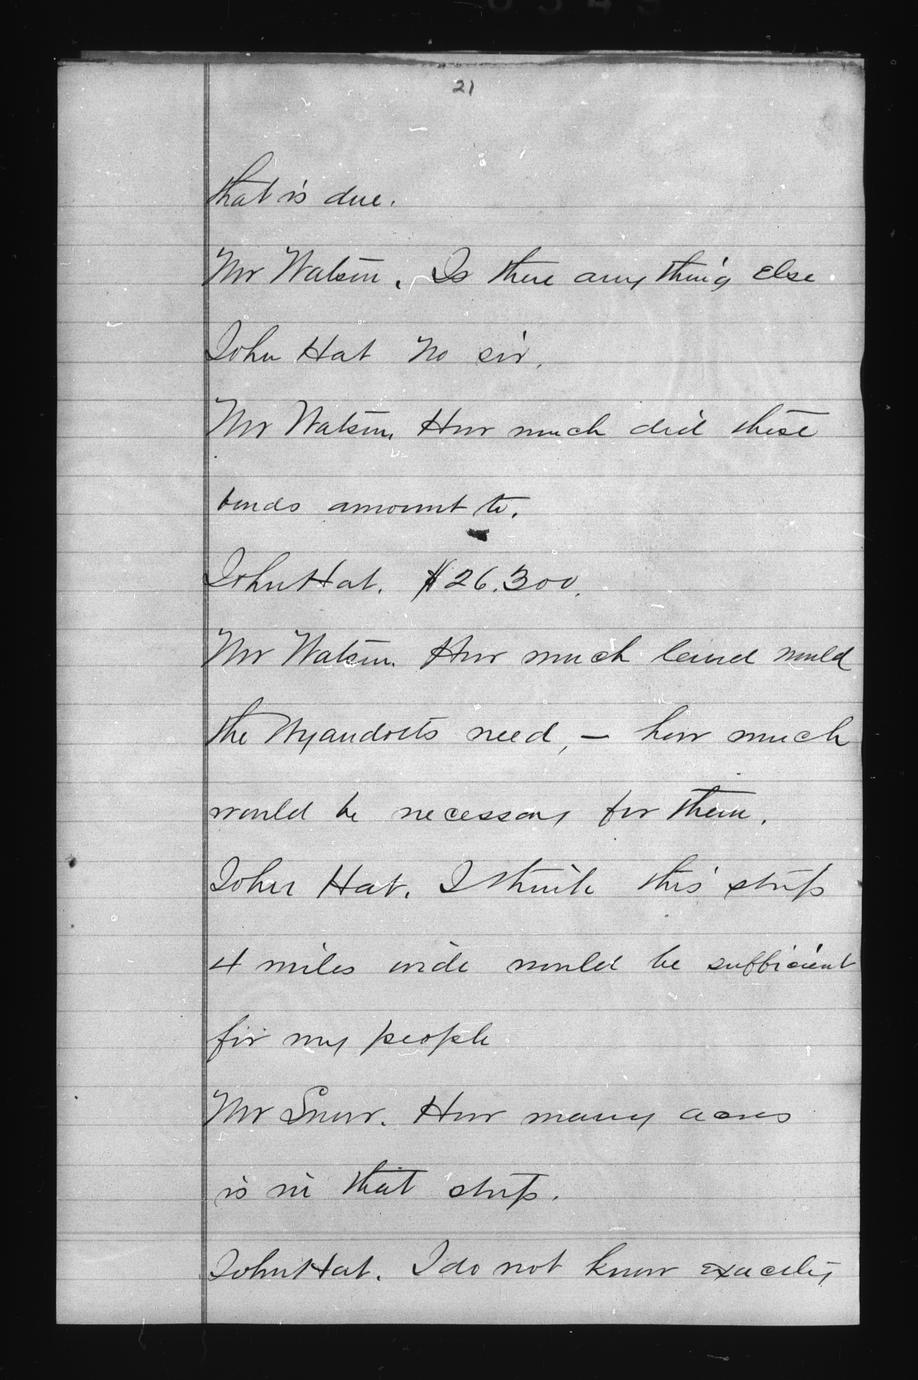 21
that is due.
Mr Watson. Is there any thing else
John Hat No sir.
Mr Watson How much did these
bonds amount to.
John Hat. $26.300.
Mr Watson How much land would
the Wyandotts need, – how much
would be necessary for them.
John Hat. I think this strip
4 miles wide would be sufficient
for my people
Mr Snow. How many acres
is in that strip.
John Hat. I do not know exactly